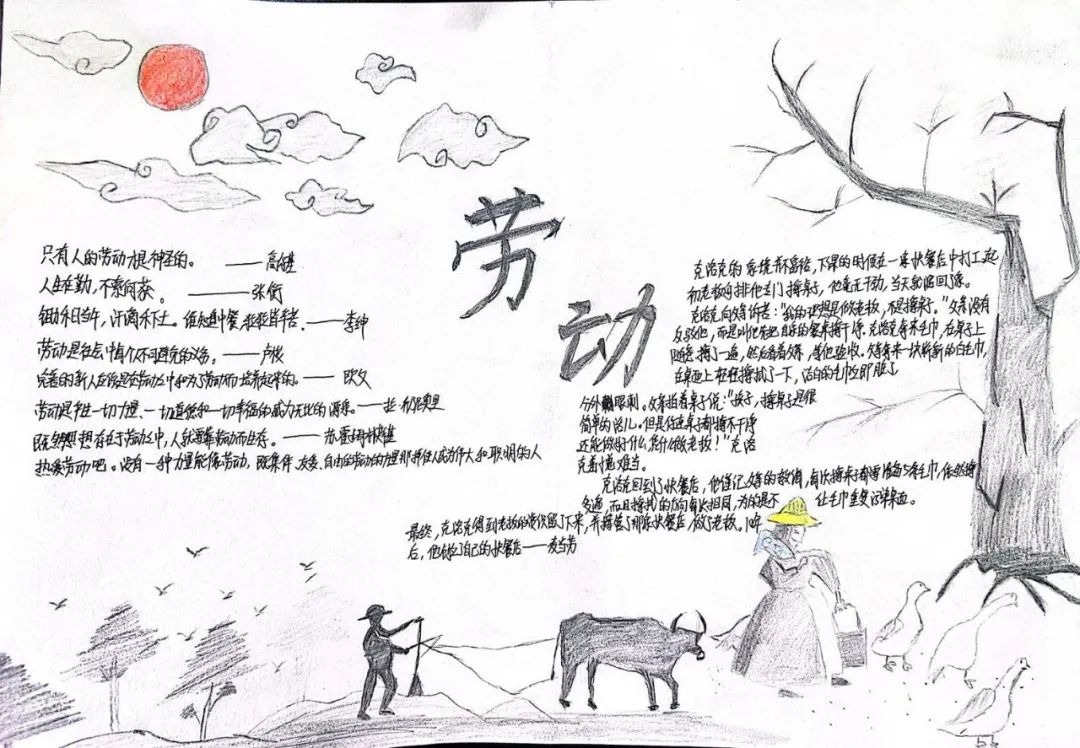 劳动
只有人的劳动才是神圣的。 ——高尔基
人生在勤,不索何获。 ——张衡
锄禾日当午,汗滴禾下土。谁知盘中餐,粒粒皆辛苦。——李绅
劳动是社会中每个人不可避免的义务。——卢梭
完善的新人应该是在劳动之中和为了劳动而培养起来的。—— 欧文
劳动是一切力量、一切道德和一切幸福的威力无比的源泉。——拉·乔乃尼奥里
既然思想存在于劳动之中,人就要靠劳动而生存。——苏霍姆林斯基
热爱劳动吧。没有一种力量能像劳动,既集体、友爱、自由的劳动的力量那样使人成为伟大和聪明的人
克洛克的家境并不富裕,下课的时候在一家快餐店中打工,起
初老板安排他专门擦桌子,他毫无干劲,当天就溜回了家。
克洛克向父亲诉苦:"我的理想是做老板,不是擦桌子。"父亲没有
反驳他,而是叫他先把自家的餐桌擦干净。克洛克拿来毛巾,在桌子上
随意擦了一遍,然后看着父亲,等他验收。父亲拿来一块崭新的白毛巾,
在桌面上轻轻擦拭了一下,洁白的毛巾立即脏了
分外刺眼。父亲指着桌子说:"孩子,擦桌子是很
简单的活儿。但是你连桌子都擦不干净
还能做好什么,凭什么做老板!"克洛
克羞愧难当。
克洛克回到了快餐店,他谨记父亲的教诲,每次擦桌子都要准备毛巾,依然擦
多遍,而且擦拭的方向每次相同,为的是不让毛巾重复污染桌面。
最终,克洛克得到老板的赏识留了下来,并接管了那家快餐店,做了老板。
后,他创立了自己的快餐店——麦当劳